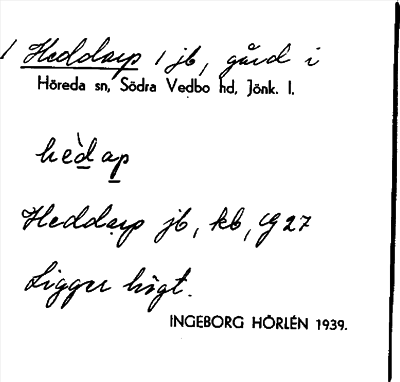 / Heddarp / jb, gård i
Höreda sn, Södra Vedbo hd, Jönk. l.
hèdap
Heddarp jb, kb, G 27
Ligger högt.
INGEBORG HÖRLÉN 1939.